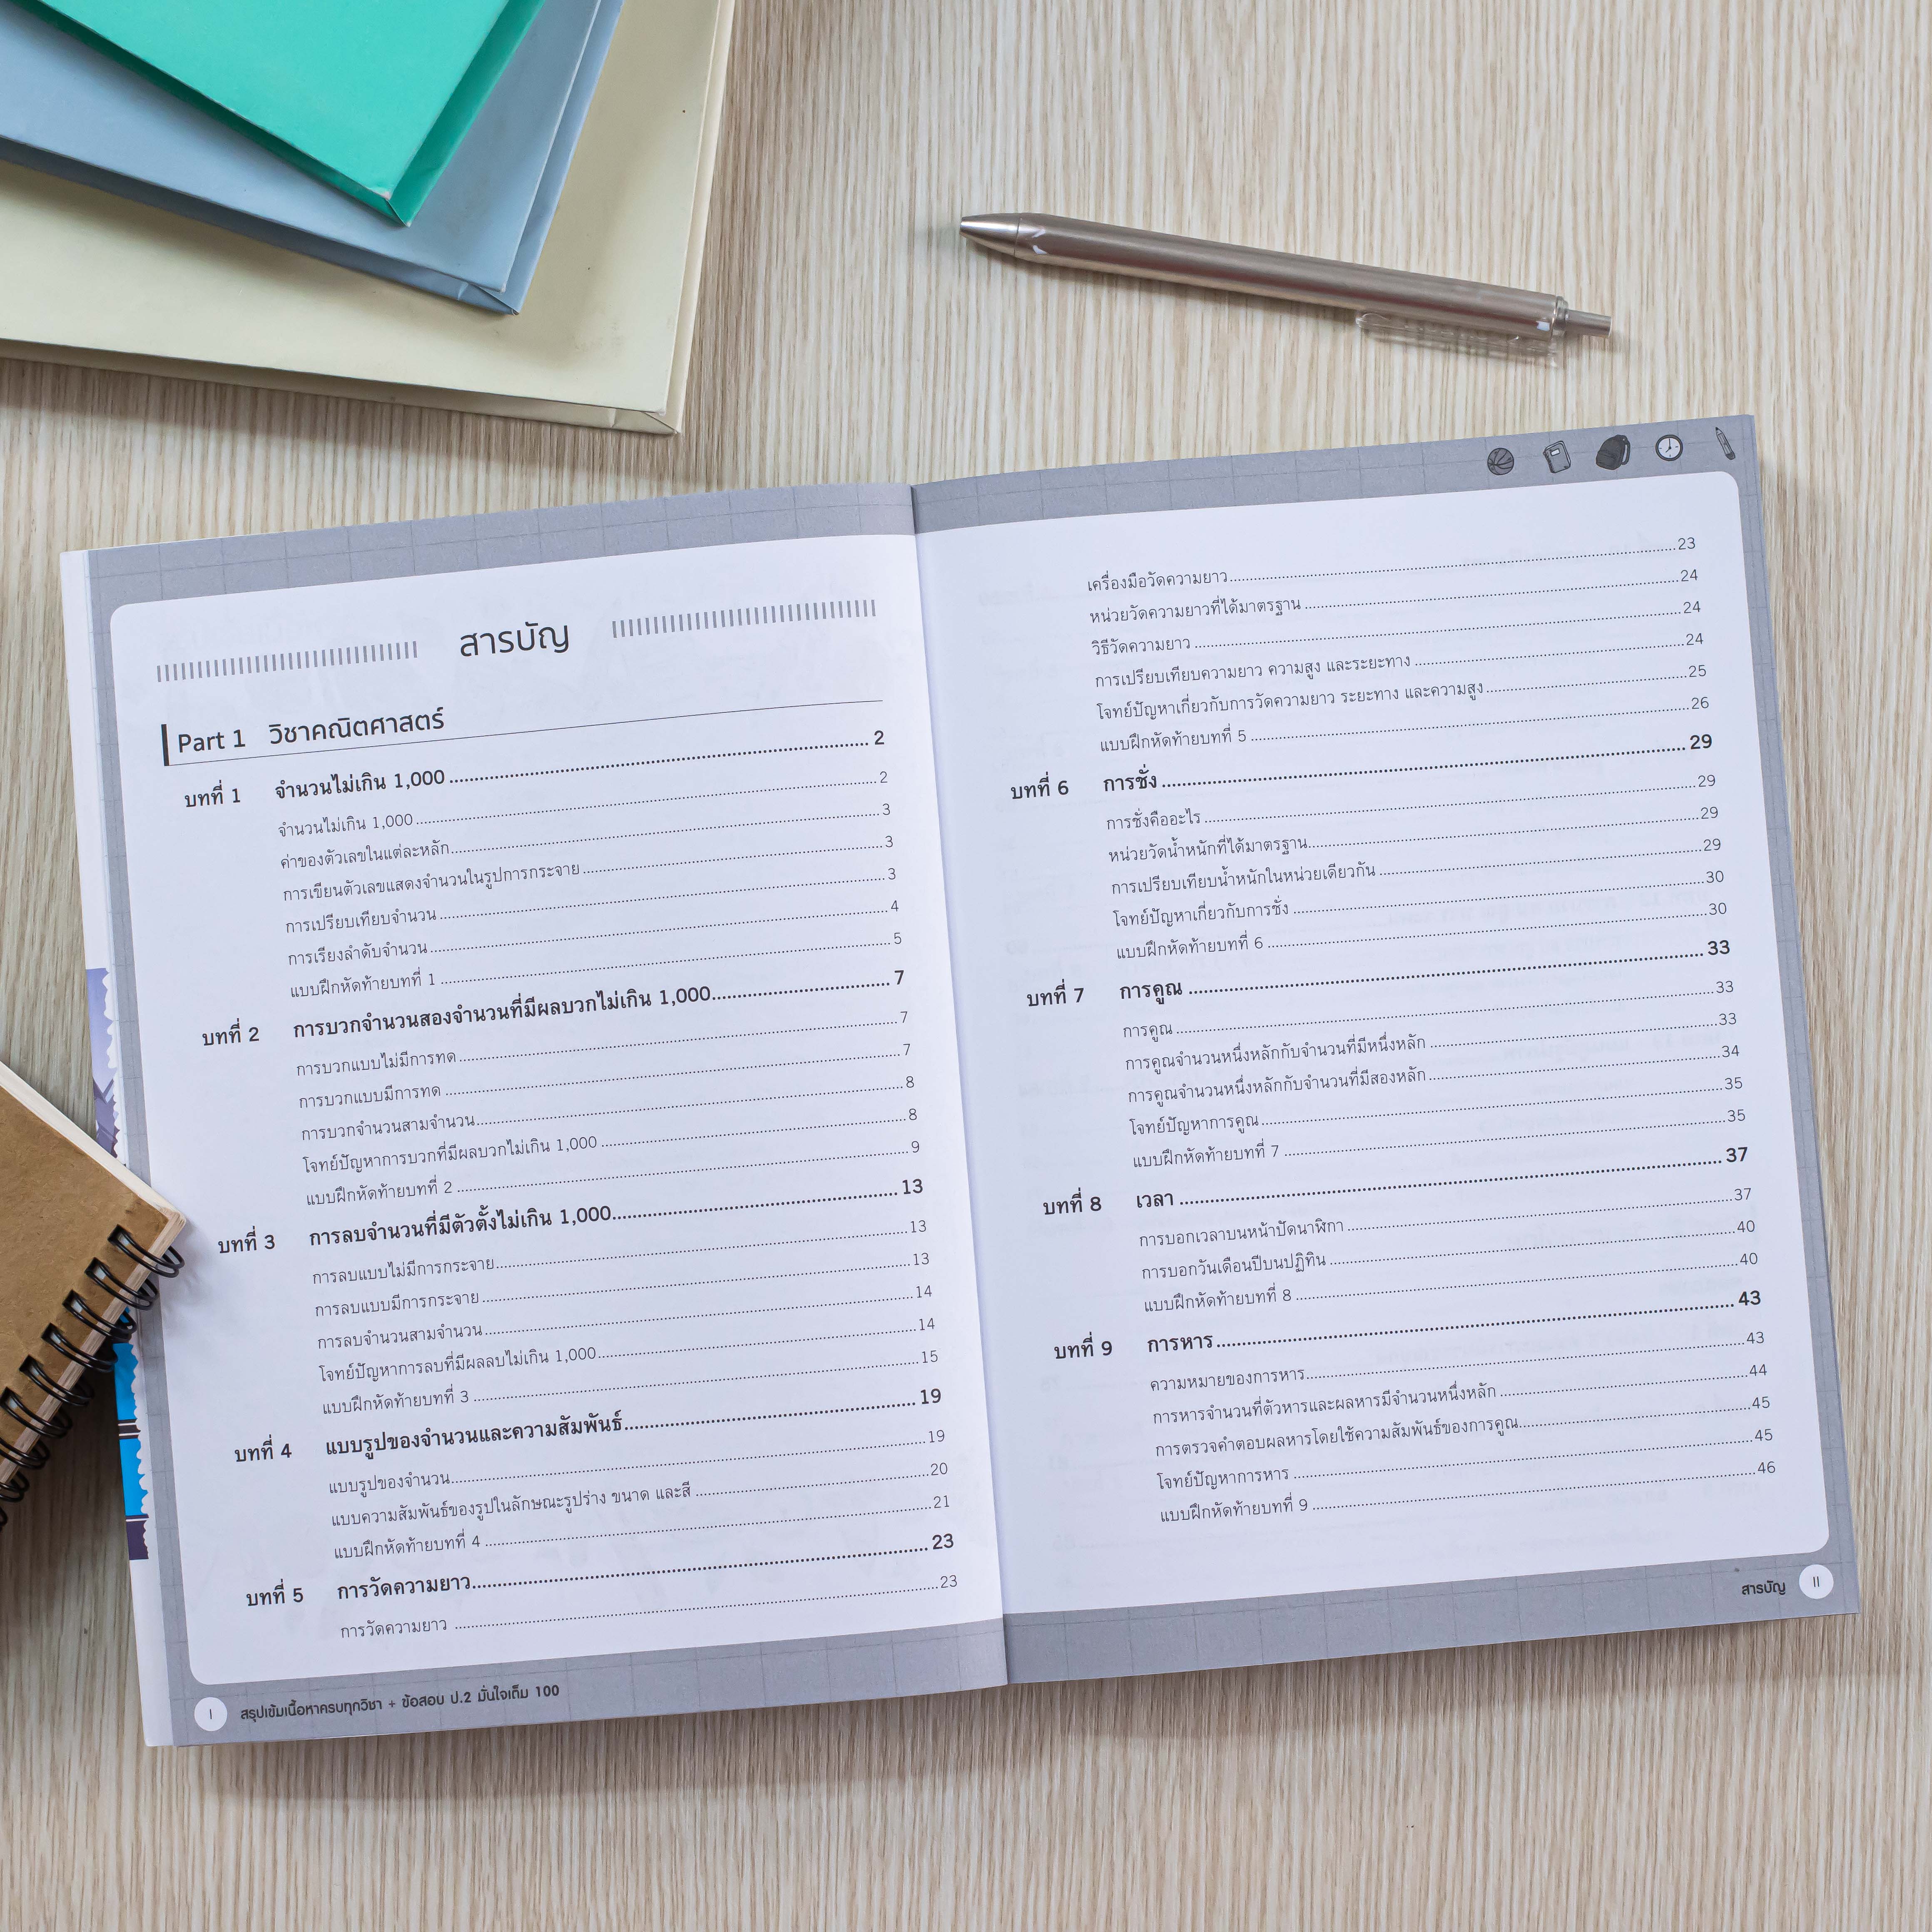 สารบัญ
Part 1 วิชาคณิตศาสตร์
บทที่ 1 จำนวนไม่เกิน 1,000 ........ 2
จำนวนไม่เกิน 1,000 ........ 2
ค่าของตัวเลขในแต่ละหลัก ........ 3
การเขียนตัวเลขแสดงจำนวนในรูปการกระจาย ........ 3
การเปรียบเทียบจำนวน ........ 3
การเรียงลำดับจำนวน ........ 4
แบบฝึกหัดท้ายบทที่ 1 ........ 5
บทที่ 2 การบวกจำนวนสองจำนวนที่มีผลบวกไม่เกิน 1,000 ........ 7
การบวกแบบไม่มีการทด ........ 7
การบวกแบบมีการทด ........ 7
การบวกจำนวนสามจำนวน ........ 8
โจทย์ปัญหาการบวกที่มีผลบวกไม่เกิน 1,000 ........ 8
แบบฝึกหัดท้ายบทที่ 2 ........ 9
บทที่ 3 การลบจำนวนที่มีตัวตั้งไม่เกิน 1,000 ........ 13
การลบแบบไม่มีการกระจาย ........ 13
การลบแบบมีการกระจาย ........ 13
การลบจำนวนสามจำนวน ........ 14
โจทย์ปัญหาการลบที่มีผลลบไม่เกิน 1,000 ........ 14
แบบฝึกหัดท้ายบทที่ 3 ........ 15
บทที่ 4 แบบรูปของจำนวนและความสัมพันธ์ ........ 19
แบบรูปของจำนวน ........ 19
แบบความสัมพันธ์ของรูปในลักษณะรูปร่าง ขนาด และสี ........ 20
แบบฝึกหัดท้ายบทที่ 4 ........ 21
บทที่ 5 การวัดความยาว ........ 23
การวัดความยาว ........ 23
I สรุปเข้มเนื้อหาครบทุกวิชา + ข้อสอบ ป.2 มั่นใจเต็ม 100
เครื่องมือวัดความยาว ........ 23
หน่วยวัดความยาวที่ได้มาตรฐาน ........ 24
วิธีวัดความยาว ........ 24
การเปรียบเทียบความยาว ความสูง และระยะทาง ........ 24
โจทย์ปัญหาเกี่ยวกับการวัดความยาว ระยะทาง และความสูง ........ 25
แบบฝึกหัดท้ายบทที่ 5 ........ 26
บทที่ 6 การชั่ง ........ 29
การชั่งคืออะไร ........ 29
หน่วยวัดน้ำหนักที่ได้มาตรฐาน ........ 29
การเปรียบเทียบน้ำหนักในหน่วยเดียวกัน ........ 29
โจทย์ปัญหาเกี่ยวกับการชั่ง ........ 30
แบบฝึกหัดท้ายบทที่ 6 ........ 30
บทที่ 7 การคูณ ........ 33
การคูณ ........ 33
การคูณจำนวนหนึ่งหลักกับจำนวนที่มีหนึ่งหลัก ........ 33
การคูณจำนวนหนึ่งหลักกับจำนวนที่มีสองหลัก ........ 34
โจทย์ปัญหาการคูณ ........ 35
แบบฝึกหัดท้ายบทที่ 7 ........ 35
บทที่ 8 เวลา ........ 37
การบอกเวลาบนหน้าปัดนาฬิกา ........ 37
การบอกวันเดือนปีบนปฏิทิน ........ 40
แบบฝึกหัดท้ายบทที่ 8 ........ 40
บทที่ 9 การหาร ........ 43
ความหมายของการหาร ........ 43
การหารจำนวนที่ตัวหารและผลหารมีจำนวนหนึ่งหลัก ........ 44
การตรวจคำตอบผลหารโดยใช้ความสัมพันธ์ของการคูณ ........ 45
โจทย์ปัญหาการหาร ........ 45
แบบฝึกหัดท้ายบทที่ 9 ........ 46
สารบัญ II